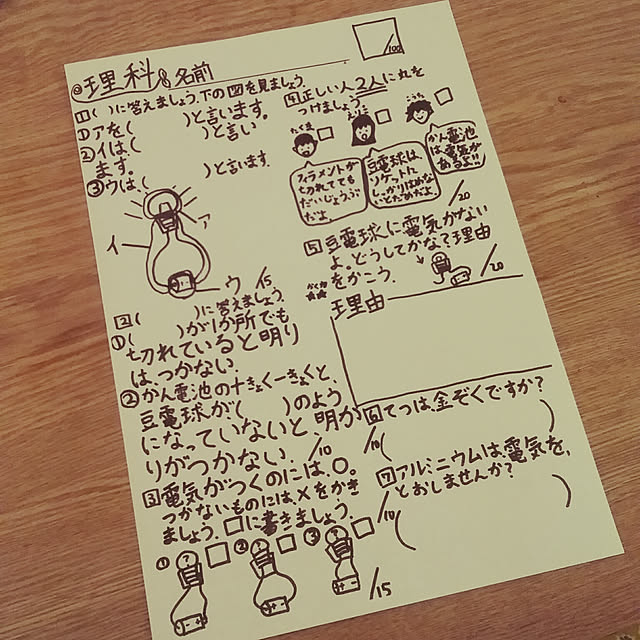 ◎理科 名前
/100
1( )に答えましょう。下の図を見ましょう。
①アを( )と言います。
②イは、( )と言い
ます。
③ウは、( )と言います。
ア
イ
ウ
/15
2( )に答えましょう。
①( )が1か所でも
切れていると明り
は、つかない。
②かん電池の+きょく-きょくと、
豆電球が( )のよう
になっていないと、明か
りがつかない。
/10
3電気がつくのには、○。
つかないものには×をかき
ましょう。□に書きましょう。
① ② ③
/15
4正しい人2人に丸を
つけましょう。
たくま
フィラメントが
切れてても
だいじょうぶ
だよ
豆電球は、
ソケットに
しっかりはめない
とだめだよ
こうた
かん電池
は、電気が
あるよ!!
/20
5豆電球に電気がつかない
よ。どうしてかな?理由
をかこう。
/20
理由
6てつは、金ぞくですか?
/10( )
7アルミニウムは、電気を、
とおしませんか?
/10( )